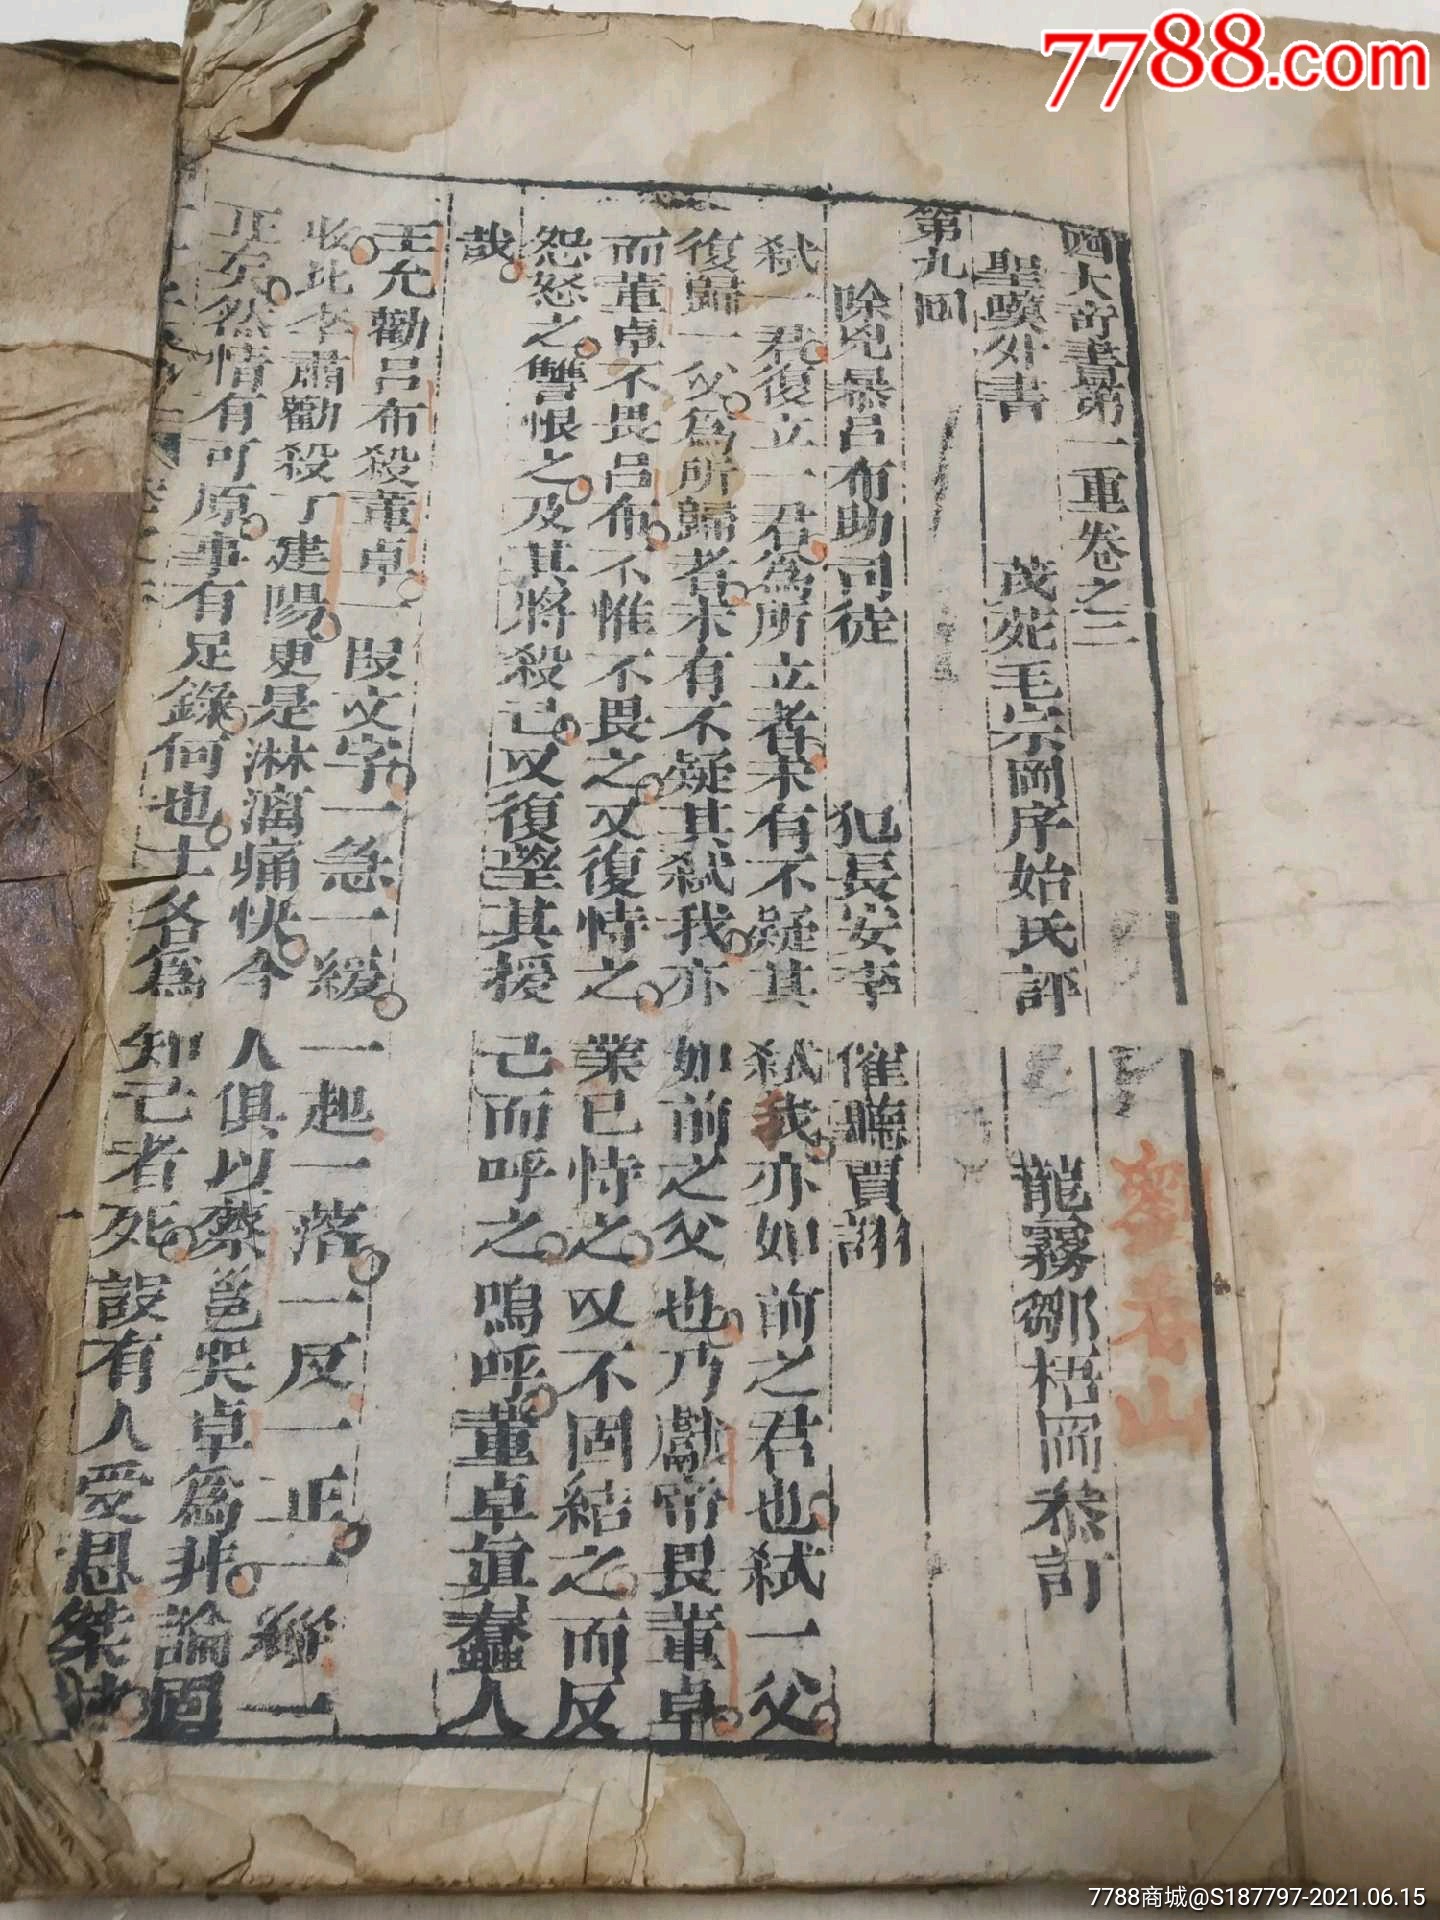 7788.com
四大奇書第一種卷之三
聖嘆外書 茂苑毛宗岡序始氏評 龍霧鄒梧岡叅訂
第九囘
除兇暴呂布助司徒 犯長安李傕聽賈詡
弒一君復立一君為所立者未有不疑其弒我亦如前之君也弒一父
復歸一父為所歸者未有不疑其弒我亦如前之父也乃獻帝畏董卓
而董卓不畏呂布不惟不畏之又復恃之業已恃之又不固結之而反
怨怒之讐恨之及其將殺己又復望其援己而呼之嗚呼董卓眞蠢人
哉
王允勸呂布殺董卓一段文字一急一緩一起一落一反一正一縱一
收比李肅勸殺丁建陽更是淋漓痛快今人俱以蔡邕哭卓為非論固
正矣然情有可原事有足錄何也士各為知己者死設有人受恩桀紂
劉春山
7788商城@S187797-2021.06.15